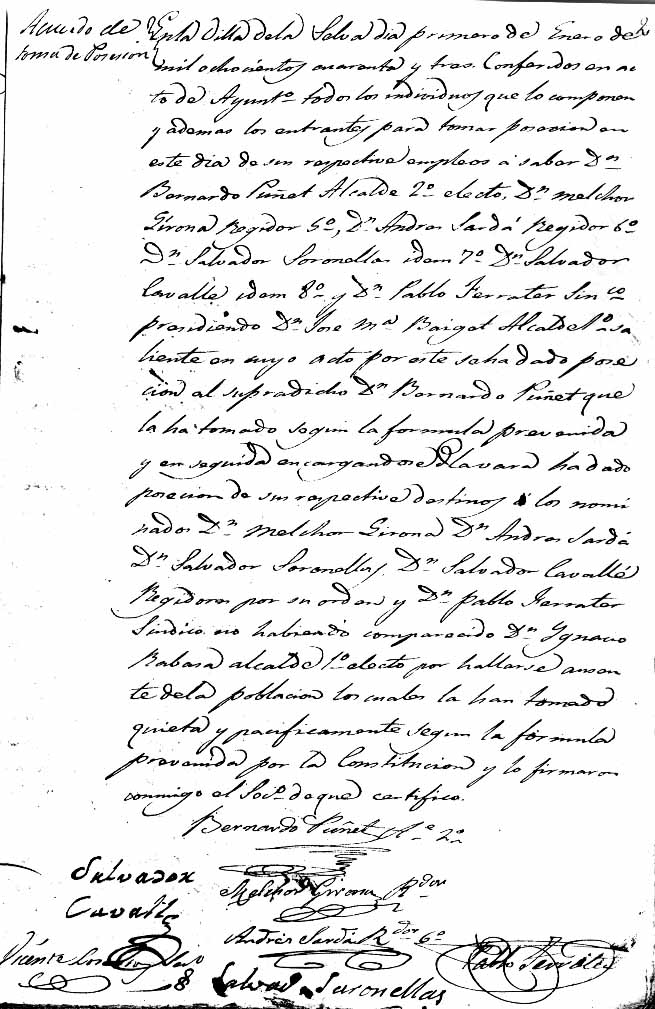 Acuerdo de
toma de Posesion
En la Villa de la Selva dia primero de Enero de
mil ochocientos cuarenta y tres. Conferidos en ac
to de Ayunt.º todos los individuos que lo componen
y ademas los entrantes para tomar posecion en
este dia de sus respective empleos á saber Dn
Bernardo Puñet Alcalde 2º electo, Dn Melchor
Girona Regidor 5º, Dn Andres Sardá Regidor 6º
Dn Salvador Soronellas idem 7º Dn Salvador
Cavallé idem 8º y Dn Pablo Ferrater Sin co
presidiendo Dn Jose Ma Baiget Alcalde 1º sa
liente en cuyo acto por este se ha dado pose
cion al supradicho Dn Bernardo Puñet que
la ha tomado segun la formula prevenida
y en seguida encargandose de la vara ha dado
posecion de sus respective destinos á los nomi
nados Dn Melchor Girona Dn Andres Sardá
Dn Salvador Soronellas, Dn Salvador Cavallé
Regidores por su orden y Dn Pablo Ferrater
Sindico no habiendo comparecido Dn Ygnacio
Rabasa alcalde 1º electo por hallarse ausen
te de la poblacion los cuales la han tomado
quieta y pacificamente segun la formula
prevenida por la Constitucion y lo firmaron
conmigo el Sociº de que certifico.
Bernardo Puñet Al.e 2º
Salvador
Cavallé
Melchor Girona R.dor
Andrés Sardá R.dor 6º
Vicente
Pablo Ferrater
Salvador Suronellas